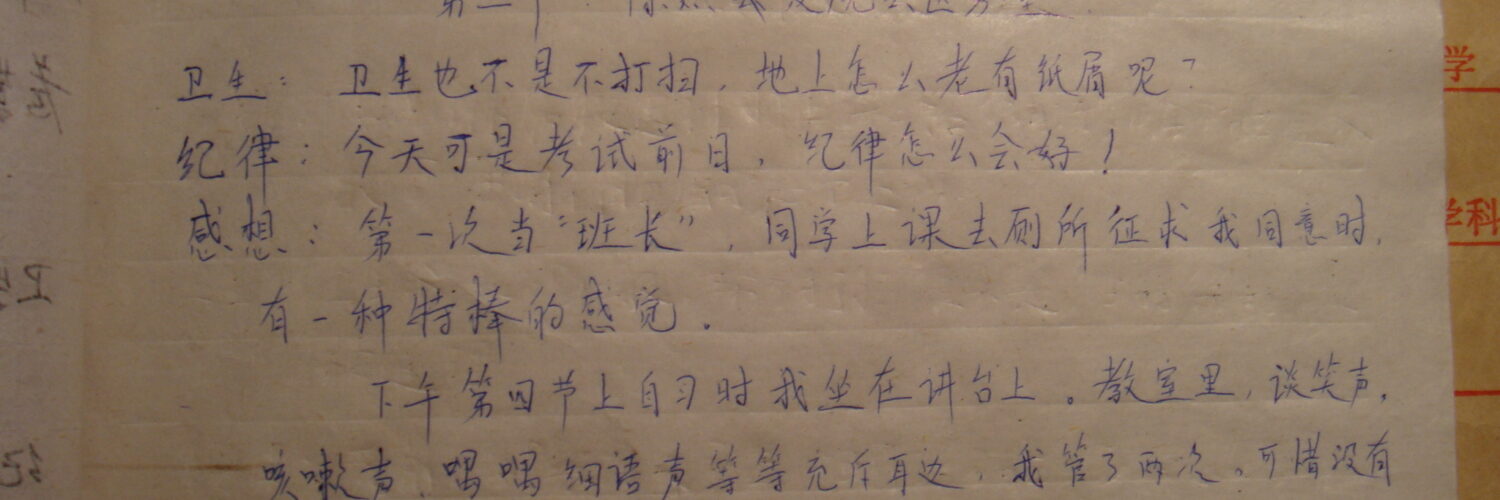 卫生：卫生也不是不打扫，地上怎么老有纸屑呢？
纪律：今天可是考试前日，纪律怎么会好！
感想：第一次当“班长”，同学上课去厕所征求我同意时，
有一种特棒的感觉。
下午第四节上自习时我坐在讲台上。教室里，谈笑声，
咳嗽声，喁喁细语声等等充斥耳边，我管了两次。可惜没有
学
学科